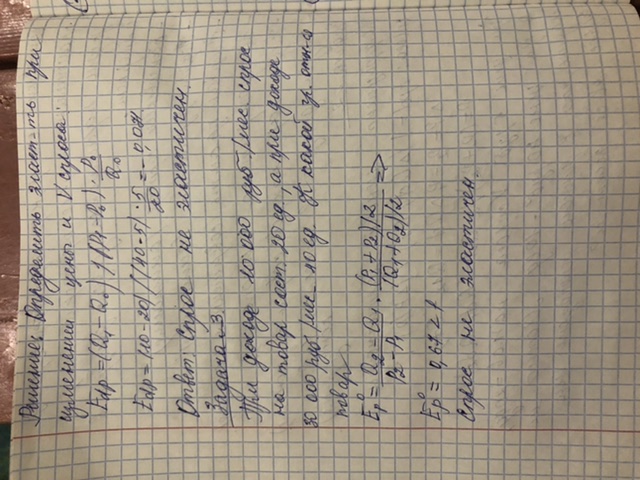 Решение: Определить эласт-ть при
изменении цены и V спроса:
Edp = (Q₁ - Q₀) / (P₁ - P₀) · P₀/Q₀
Edp = (10 - 20) / (40 - 5) · 5/20 = -0,07
Ответ: Спрос не эластичен
Задача 3
При доходе 10 000 руб/мес спрос
на товар сост. 20 ед, а при доходе
30 000 руб/мес 10 ед. К какой гр. отн-ся
товар
Ep = Q₂ - Q₁ / P₂ - P₁ · (P₁ + P₂)/2 / (Q₁ + Q₂)/2 =>
Ep = 0,67 < 1
Спрос не эластичен.